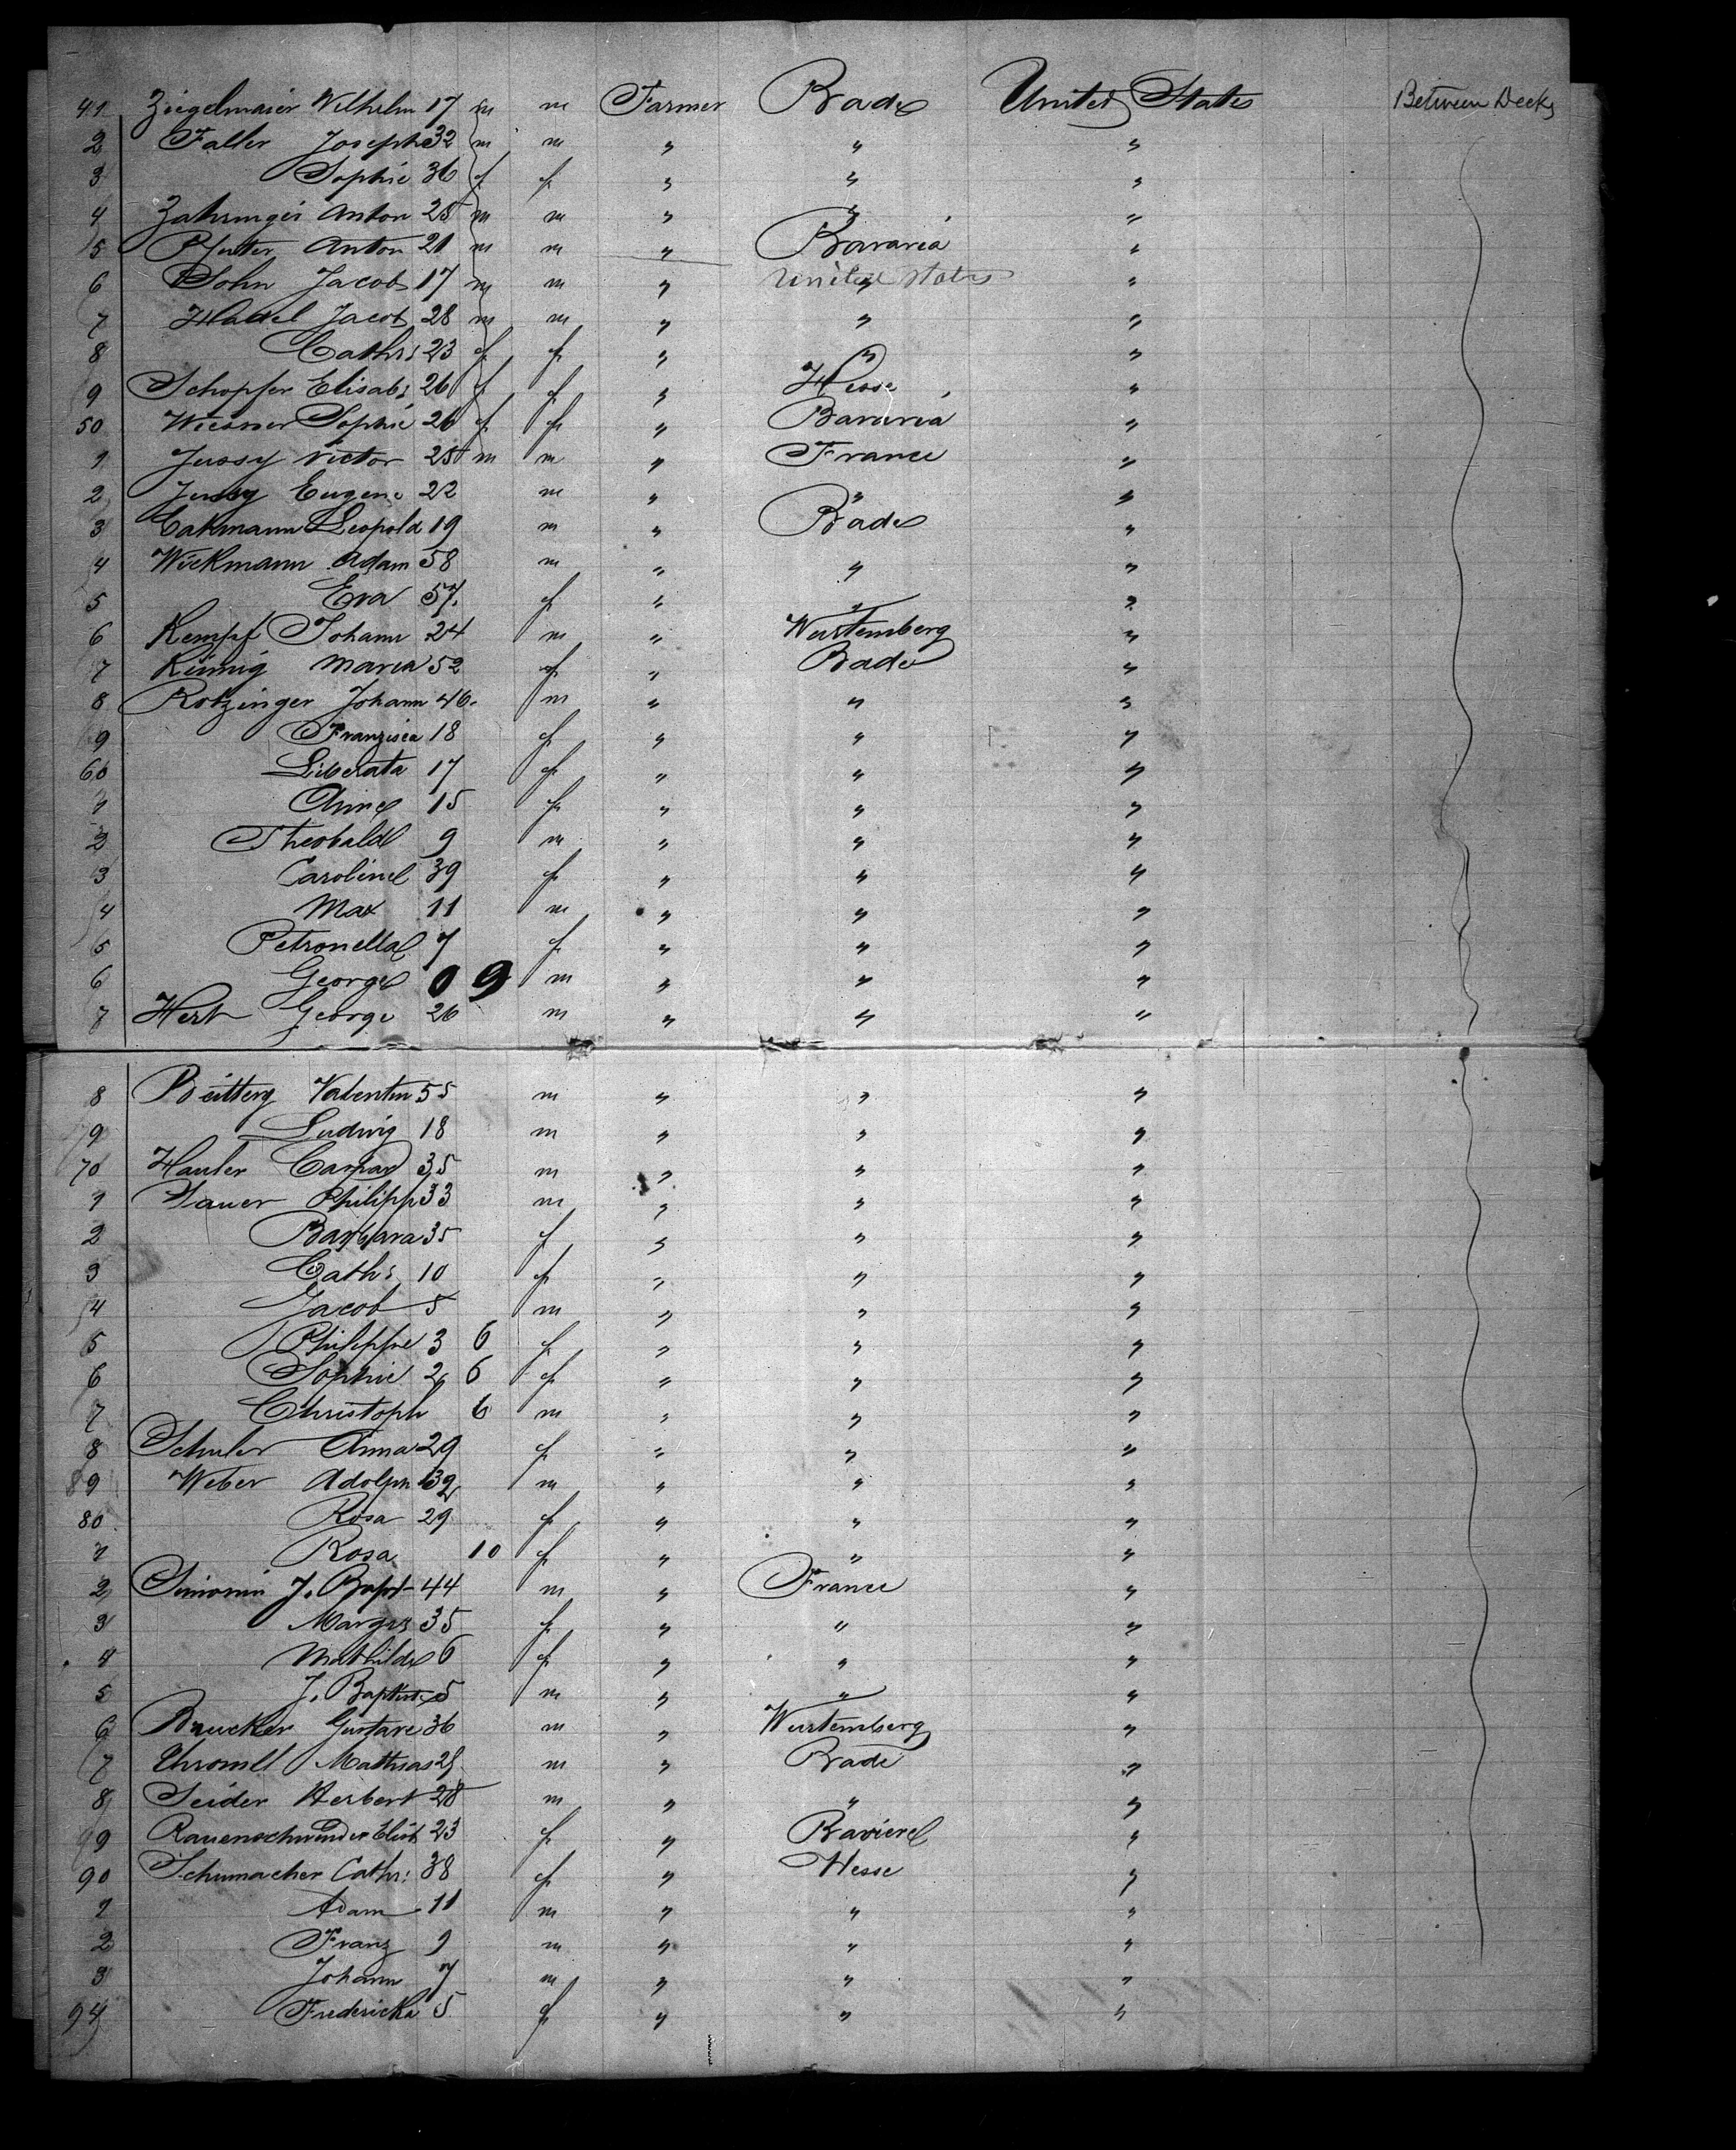 41 Ziegelmaier Wilhelm 17 m m Farmer Bade United States Between Decks
2 Faller Joseph 32 m m " " "
3 Sophie 36 f f " " "
4 Zahringer Anton 25 m m " " "
5 Anton 21 m m " Bavaria "
6 Sohn Jacob 17 m m " United States " "
7 Hadel Jacob 28 m m " " "
8 Cath: 23 f f " " "
9 Schopfer Elisab: 26 f f " Hesse "
50 Wiesner Sophie 26 f f " Bavaria "
1 Jussy Victor 25 m m " France "
2 Jussy Eugene 22 m " " "
3 Leopold 19 m " Bade "
4 Wickmann Adam 58 m " " "
5 Eva 57. f " " "
6 Kempf Johann 24 m " Wurtemberg "
7 Maria 52 f " Bade "
8 Rotzinger Johann 46. m " " "
9 Franzisca 18 f " " "
60 Liberata 17 f " " "
1 Anne 15 f " " "
2 Theobald 9 m " " "
3 Caroline 39 f " " "
4 Max 11 m " " "
5 Petronella 7 f " " "
6 George 0 9 m " " "
7 Hert George 26 m " " "
8 Valentin 55 m " " "
9 Ludwig 18 m " " "
70 Hauler Caspar 35 m " " "
1 Sauer Philipp 33 m " " "
2 Barbara 35 f " " "
3 Cath: 10 f " " "
4 Jacob 5 m " " "
5 Philippe 3 6 f " " "
6 Sophie 2 6 f " " "
7 Christoph 6 m " " "
8 Schuler Anna 29 f " " "
9 Weber Adolph 39 m " " "
80 Rosa 29 f " " "
1 Rosa 10 f " " "
2 Simonin J. Bapt 44 m " France "
3 Margr 35 f " " "
4 Mathilde 6 f " " "
5 J. Baptiste 5 m " " "
6 Brucker Gustave 36 m " Wurtemberg "
7 Mathias m " Bade "
8 Seider Herbert 28 m " " "
9 Rauenschwender Elisb 23 f " Baviere "
90 Schumacher Cath: 38 f " Hesse "
1 Adam 11 m " " "
2 Franz 9 m " " "
3 Johann 7 m " " "
94 Fredericka 5 f " " "